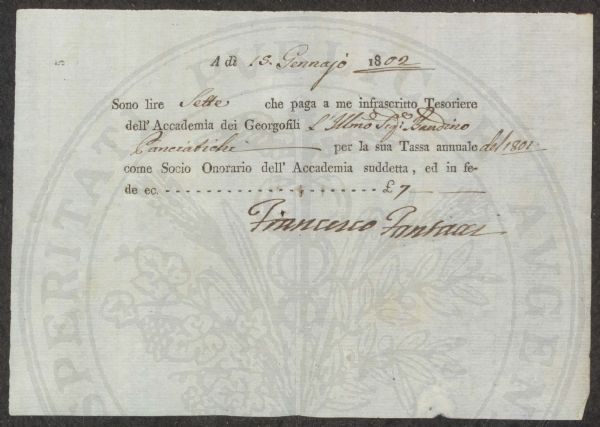 A dì 15. Gennajo 1802
Sono lire Sette che paga a me infrascritto Tesoriere
dell' Accademia dei Georgofili L'Illmo Sigr. Bandino
Panciatichi per la sua Tassa annuale del 1801
come Socio Onorario dell' Accademia suddetta, ed in fe-
de ec. - - - - - - - - - - - - - - - - - - - - - £ 7
Francesco Pontacci
PROSPERITATI PUBLICAE AUGENDAE